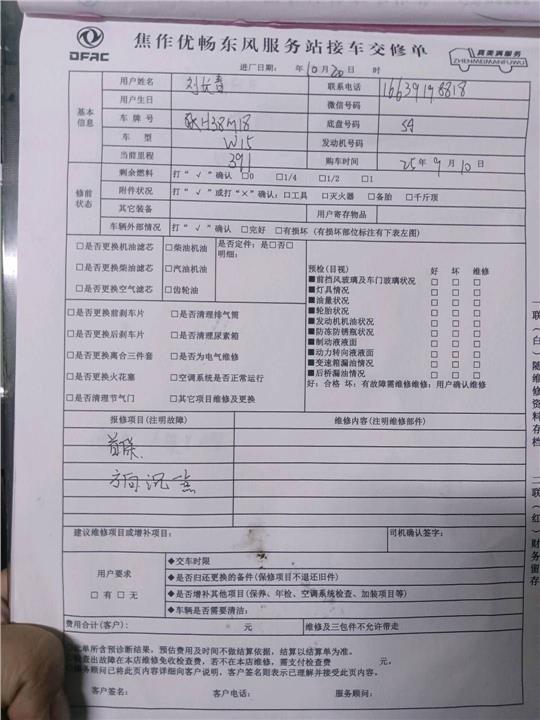 DFAC
焦作优畅东风服务站接车交修单
真美满服务
ZHENMEIMANFUWU
进厂日期: 年10月20日 时
基本信息
用户姓名 刘长春 联系电话 16639198818
用户生日 微信号码
车牌号 H38M18 底盘号码 54
车型 W15 发动机号码
当前里程 391 购车时间 25年9月10日
修前状态
剩余燃料 打“√”确认 □0 □1/4 □1/2 □1
附件状况 打“√”或打“×”确认:□工具 □灭火器 □备胎 □千斤顶
其它装备 用户寄存物品
车辆外部情况 打“√”确认 □完好 □有损坏(有损坏部位标注有下表左图)
□是否更换机油滤芯 □柴油机油
□是否更换柴油滤芯 □汽油机油
□是否更换空气滤芯 □齿轮油
是否定件:是□否□
明细:
□是否更换前刹车片 □是否清理排气筒
□是否更换后刹车片 □是否清理尿素箱
□是否更换离合三件套 □是否为电气维修
□是否更换火花塞 □空调系统是否正常运行
□是否清理节气门 □其它项目维修及更换
预检(目视) 好 坏 维修
■前挡风玻璃及车门玻璃状况 □ □ □
■灯具情况 □ □ □
■油量状况 □ □ □
■轮胎状况 □ □ □
■发动机机油状况 □ □ □
■防冻防锈瓶状况 □ □ □
■制动液液面 □ □ □
■动力转向液液面 □ □ □
■变速箱漏油情况 □ □ □
■后桥漏油情况 □ □ □
好:合格 坏:有故障需维修维修:用户确认维修
报修项目(注明故障) 维修内容(注明维修部件)
首保
方向沉
建议维修项目或增补项目: 司机确认签字:
用户要求
□有 □无
◆交车时限
◆是否归还更换的备件(保修项目不退还旧件)
◆是否增补其他项目(保养、年检、空调系统检查、加装项目等)
◆车辆是否需要清洁:
费用合计(客户): 元 维修及三包件不允许带走
此单所含预诊断结果,预估费用及时间不做结算依据,结算以结算单为准。
检查出故障在本店维修免收检查费,若不在本店维修,需支付检查费 元。
服务顾问已将此页内容详细向客户说明,客户签名则表示已理解并接受此页内容。
客户签名: 客户电话: 服务顾问:
一联(白)随维修资料存档
二联(红)财务留存